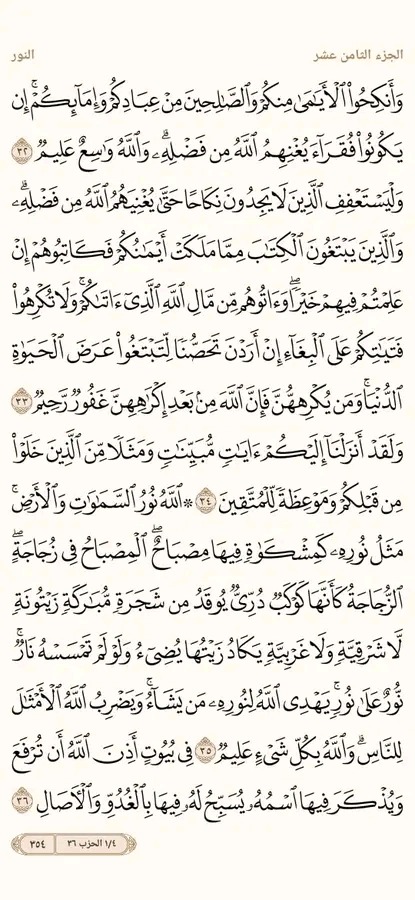 الجزء الثامن عشر النور
وَأَنكِحُوا۟ ٱلْأَيَـٰمَىٰ مِنكُمْ وَٱلصَّـٰلِحِينَ مِنْ عِبَادِكُمْ وَإِمَآئِكُمْ ۚ إِن
يَكُونُوا۟ فُقَرَآءَ يُغْنِهِمُ ٱللَّهُ مِن فَضْلِهِۦ ۗ وَٱللَّهُ وَٰسِعٌ عَلِيمٌ ٣٢
وَلْيَسْتَعْفِفِ ٱلَّذِينَ لَا يَجِدُونَ نِكَاحًا حَتَّىٰ يُغْنِيَهُمُ ٱللَّهُ مِن فَضْلِهِۦ ۗ
وَٱلَّذِينَ يَبْتَغُونَ ٱلْكِتَـٰبَ مِمَّا مَلَكَتْ أَيْمَـٰنُكُمْ فَكَاتِبُوهُمْ إِنْ
عَلِمْتُمْ فِيهِمْ خَيْرًا ۖ وَءَاتُوهُم مِّن مَّالِ ٱللَّهِ ٱلَّذِىٓ ءَاتَىٰكُمْ ۚ وَلَا تُكْرِهُوا۟
فَتَيَـٰتِكُمْ عَلَى ٱلْبِغَآءِ إِنْ أَرَدْنَ تَحَصُّنًا لِّتَبْتَغُوا۟ عَرَضَ ٱلْحَيَوٰةِ
ٱلدُّنْيَا ۚ وَمَن يُكْرِههُّنَّ فَإِنَّ ٱللَّهَ مِنۢ بَعْدِ إِكْرَٰهِهِنَّ غَفُورٌ رَّحِيمٌ ٣٣
وَلَقَدْ أَنزَلْنَآ إِلَيْكُمْ ءَايَـٰتٍ مُّبَيِّنَـٰتٍ وَمَثَلًا مِّنَ ٱلَّذِينَ خَلَوْا۟
مِن قَبْلِكُمْ وَمَوْعِظَةً لِّلْمُتَّقِينَ ٣٤ ۞ ٱللَّهُ نُورُ ٱلسَّمَـٰوَٰتِ وَٱلْأَرْضِ ۚ
مَثَلُ نُورِهِۦ كَمِشْكَوٰةٍ فِيهَا مِصْبَاحٌ ۖ ٱلْمِصْبَاحُ فِى زُجَاجَةٍ ۖ
ٱلزُّجَاجَةُ كَأَنَّهَا كَوْكَبٌ دُرِّىٌّ يُوقَدُ مِن شَجَرَةٍ مُّبَـٰرَكَةٍ زَيْتُونَةٍ
لَّا شَرْقِيَّةٍ وَلَا غَرْبِيَّةٍ يَكَادُ زَيْتُهَا يُضِىٓءُ وَلَوْ لَمْ تَمْسَسْهُ نَارٌ ۚ
نُّورٌ عَلَىٰ نُورٍ ۗ يَهْدِى ٱللَّهُ لِنُورِهِۦ مَن يَشَآءُ ۚ وَيَضْرِبُ ٱللَّهُ ٱلْأَمْثَـٰلَ
لِلنَّاسِ ۗ وَٱللَّهُ بِكُلِّ شَىْءٍ عَلِيمٌ ٣٥ فِى بُيُوتٍ أَذِنَ ٱللَّهُ أَن تُرْفَعَ
وَيُذْكَرَ فِيهَا ٱسْمُهُۥ يُسَبِّحُ لَهُۥ فِيهَا بِٱلْغُدُوِّ وَٱلْـَٔاصَالِ ٣٦
١/٤ الحزب ٣٦ ٣٥٤